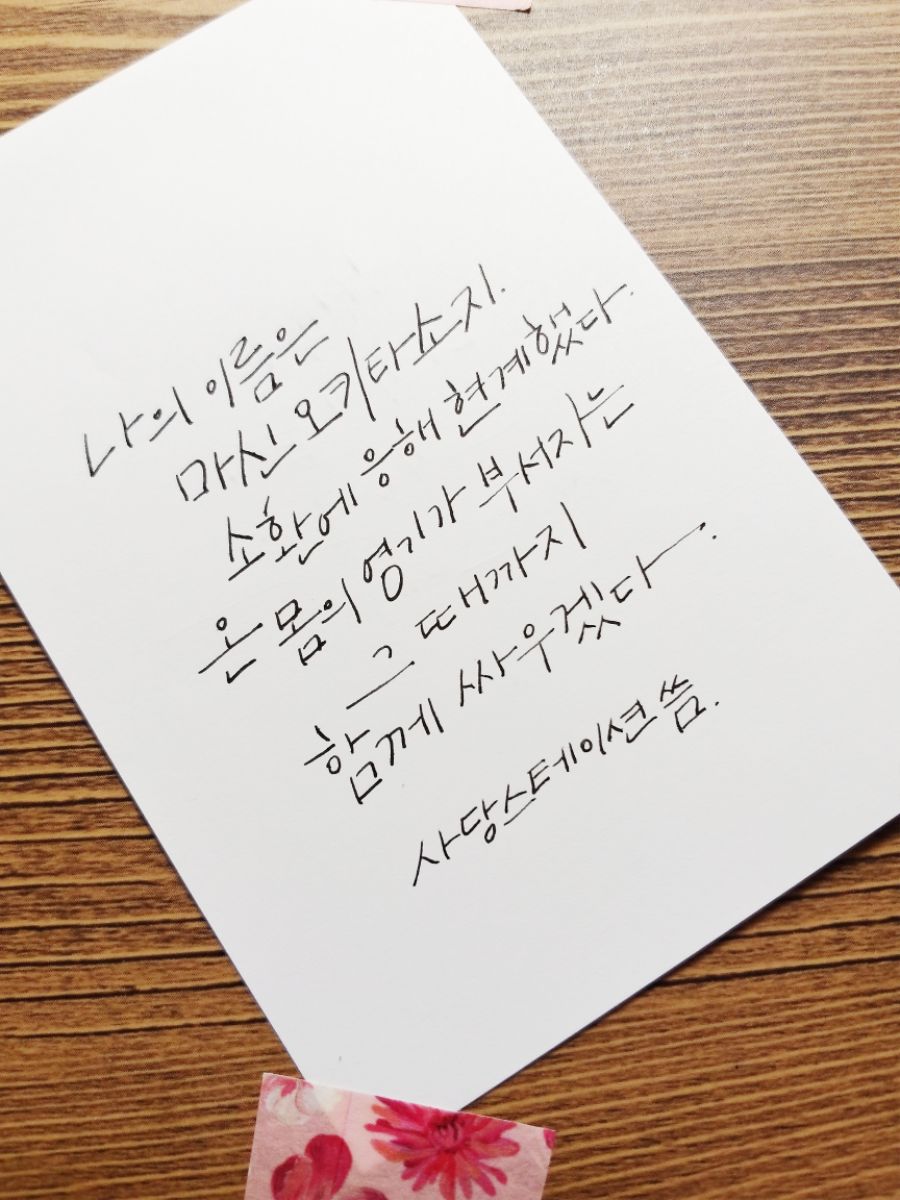 나의 이름은
마신 오키타 소지.
소환에 응해 현계했다.
온 몸의 영기가 부서지는
그 때까지
함께 싸우겠다.
사당스테이션 씀.